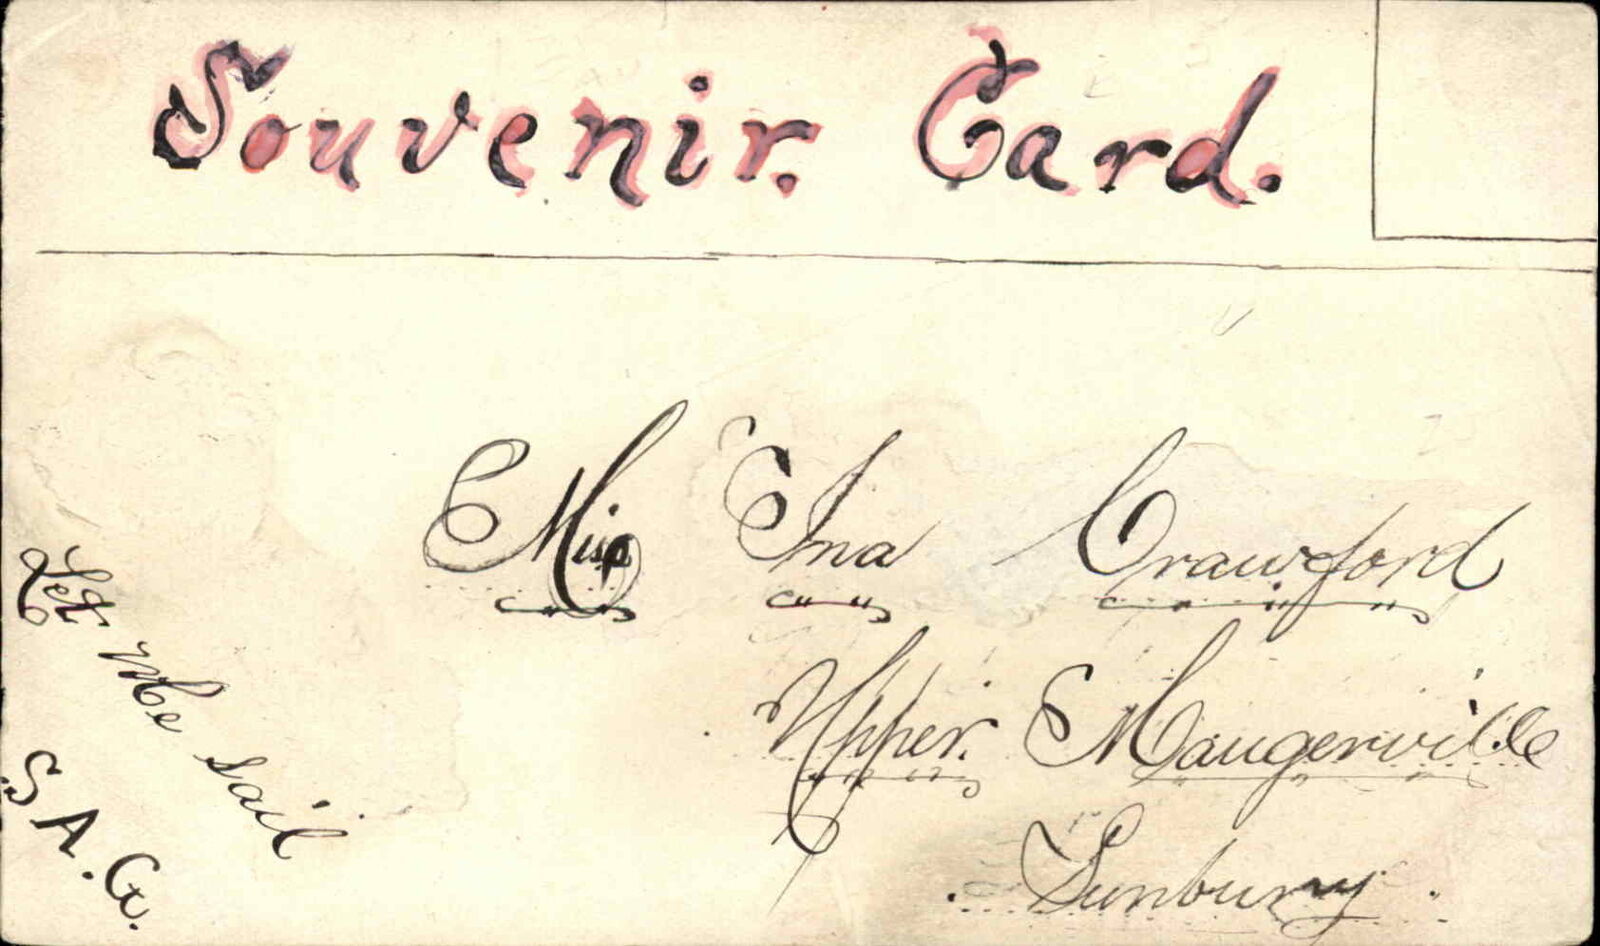 Souvenir. Card.
Miss Ina Crawford
Upper. Maugerville
Sunbury.
Let Me sail
S. A. G.